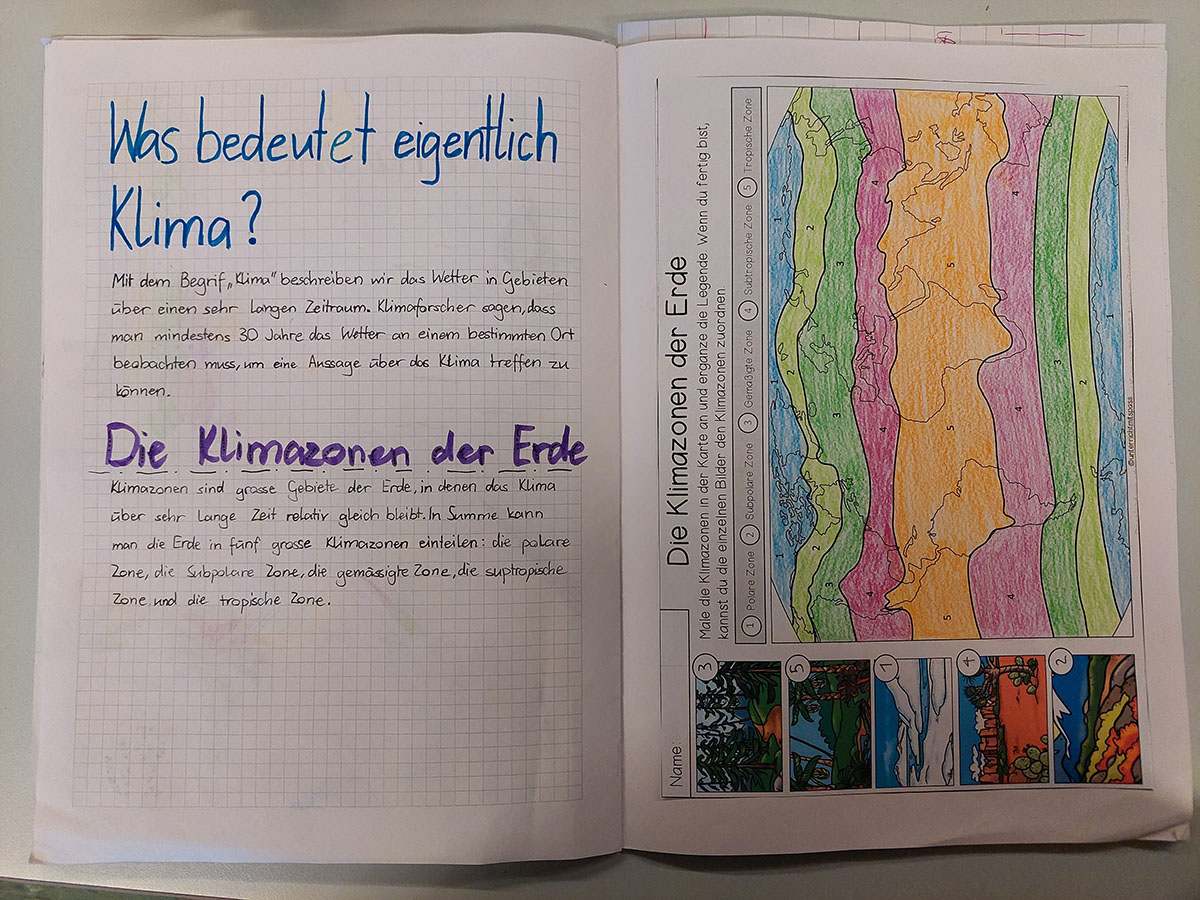 Was bedeutet eigentlich
Klima?
Mit dem Begrif „Klima“ beschreiben wir das Wetter in Gebieten
über einen sehr langen Zeitraum. Klimaforscher sagen, dass
man mindestens 30 Jahre das Wetter an einem bestimmten Ort
beobachten muss, um eine Aussage über das Klima treffen zu
können.
Die Klimazonen der Erde
Klimazonen sind grosse Gebiete der Erde, in denen das Klima
über sehr Lange Zeit relativ gleich bleibt. In Summe kann
man die Erde in fünf grosse Klimazonen einteilen: die polare
Zone, die Subpolare Zone, die gemässigte Zone, die suptropische
Zone und die tropische Zone.
Name:
Die Klimazonen der Erde
Male die Klimazonen in der Karte an und ergänze die Legende. Wenn du fertig bist,
kannst du die einzelnen Bilder den Klimazonen zuordnen
1 Polare Zone 2 Subpolare Zone 3 Gemäßigte Zone 4 Subtropische Zone 5 Tropische Zone
3
5
1
4
2
1 1 1
2 2 2
3 3 3
4 4 4
5 5 5
4 4 4
3
2
1
©unterrichtmitspass